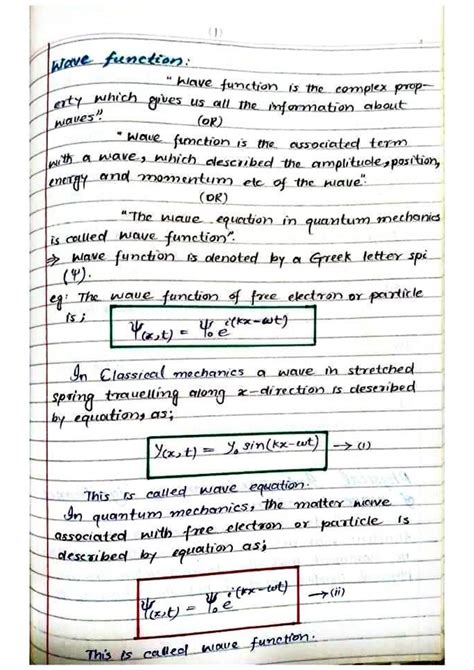 (1)
Wave function:
"Wave function is the complex prop-
erty which gives us all the information about
waves".
(OR)
"Wave function is the associated term
with a wave, which described the amplitude, position,
energy and momentum etc of the wave".
(OR)
"The wave equation in quantum mechanics
is called wave function".
⇒ Wave function is denoted by a Greek letter spi
(Ψ).
eg: The wave function of free electron or particle
is;
Ψ(x,t) = Ψ₀ e^i(kx-ωt)
In Classical mechanics a wave in stretched
spring travelling along x-direction is described
by equation, as;
Y(x,t) = Y₀ sin(kx-ωt) → (i)
This is called wave equation.
In quantum mechanics, the matter wave
associated with free electron or particle is
described by equation as;
Ψ(x,t) = Ψ₀ e^i(kx-ωt) → (ii)
This is called wave function.